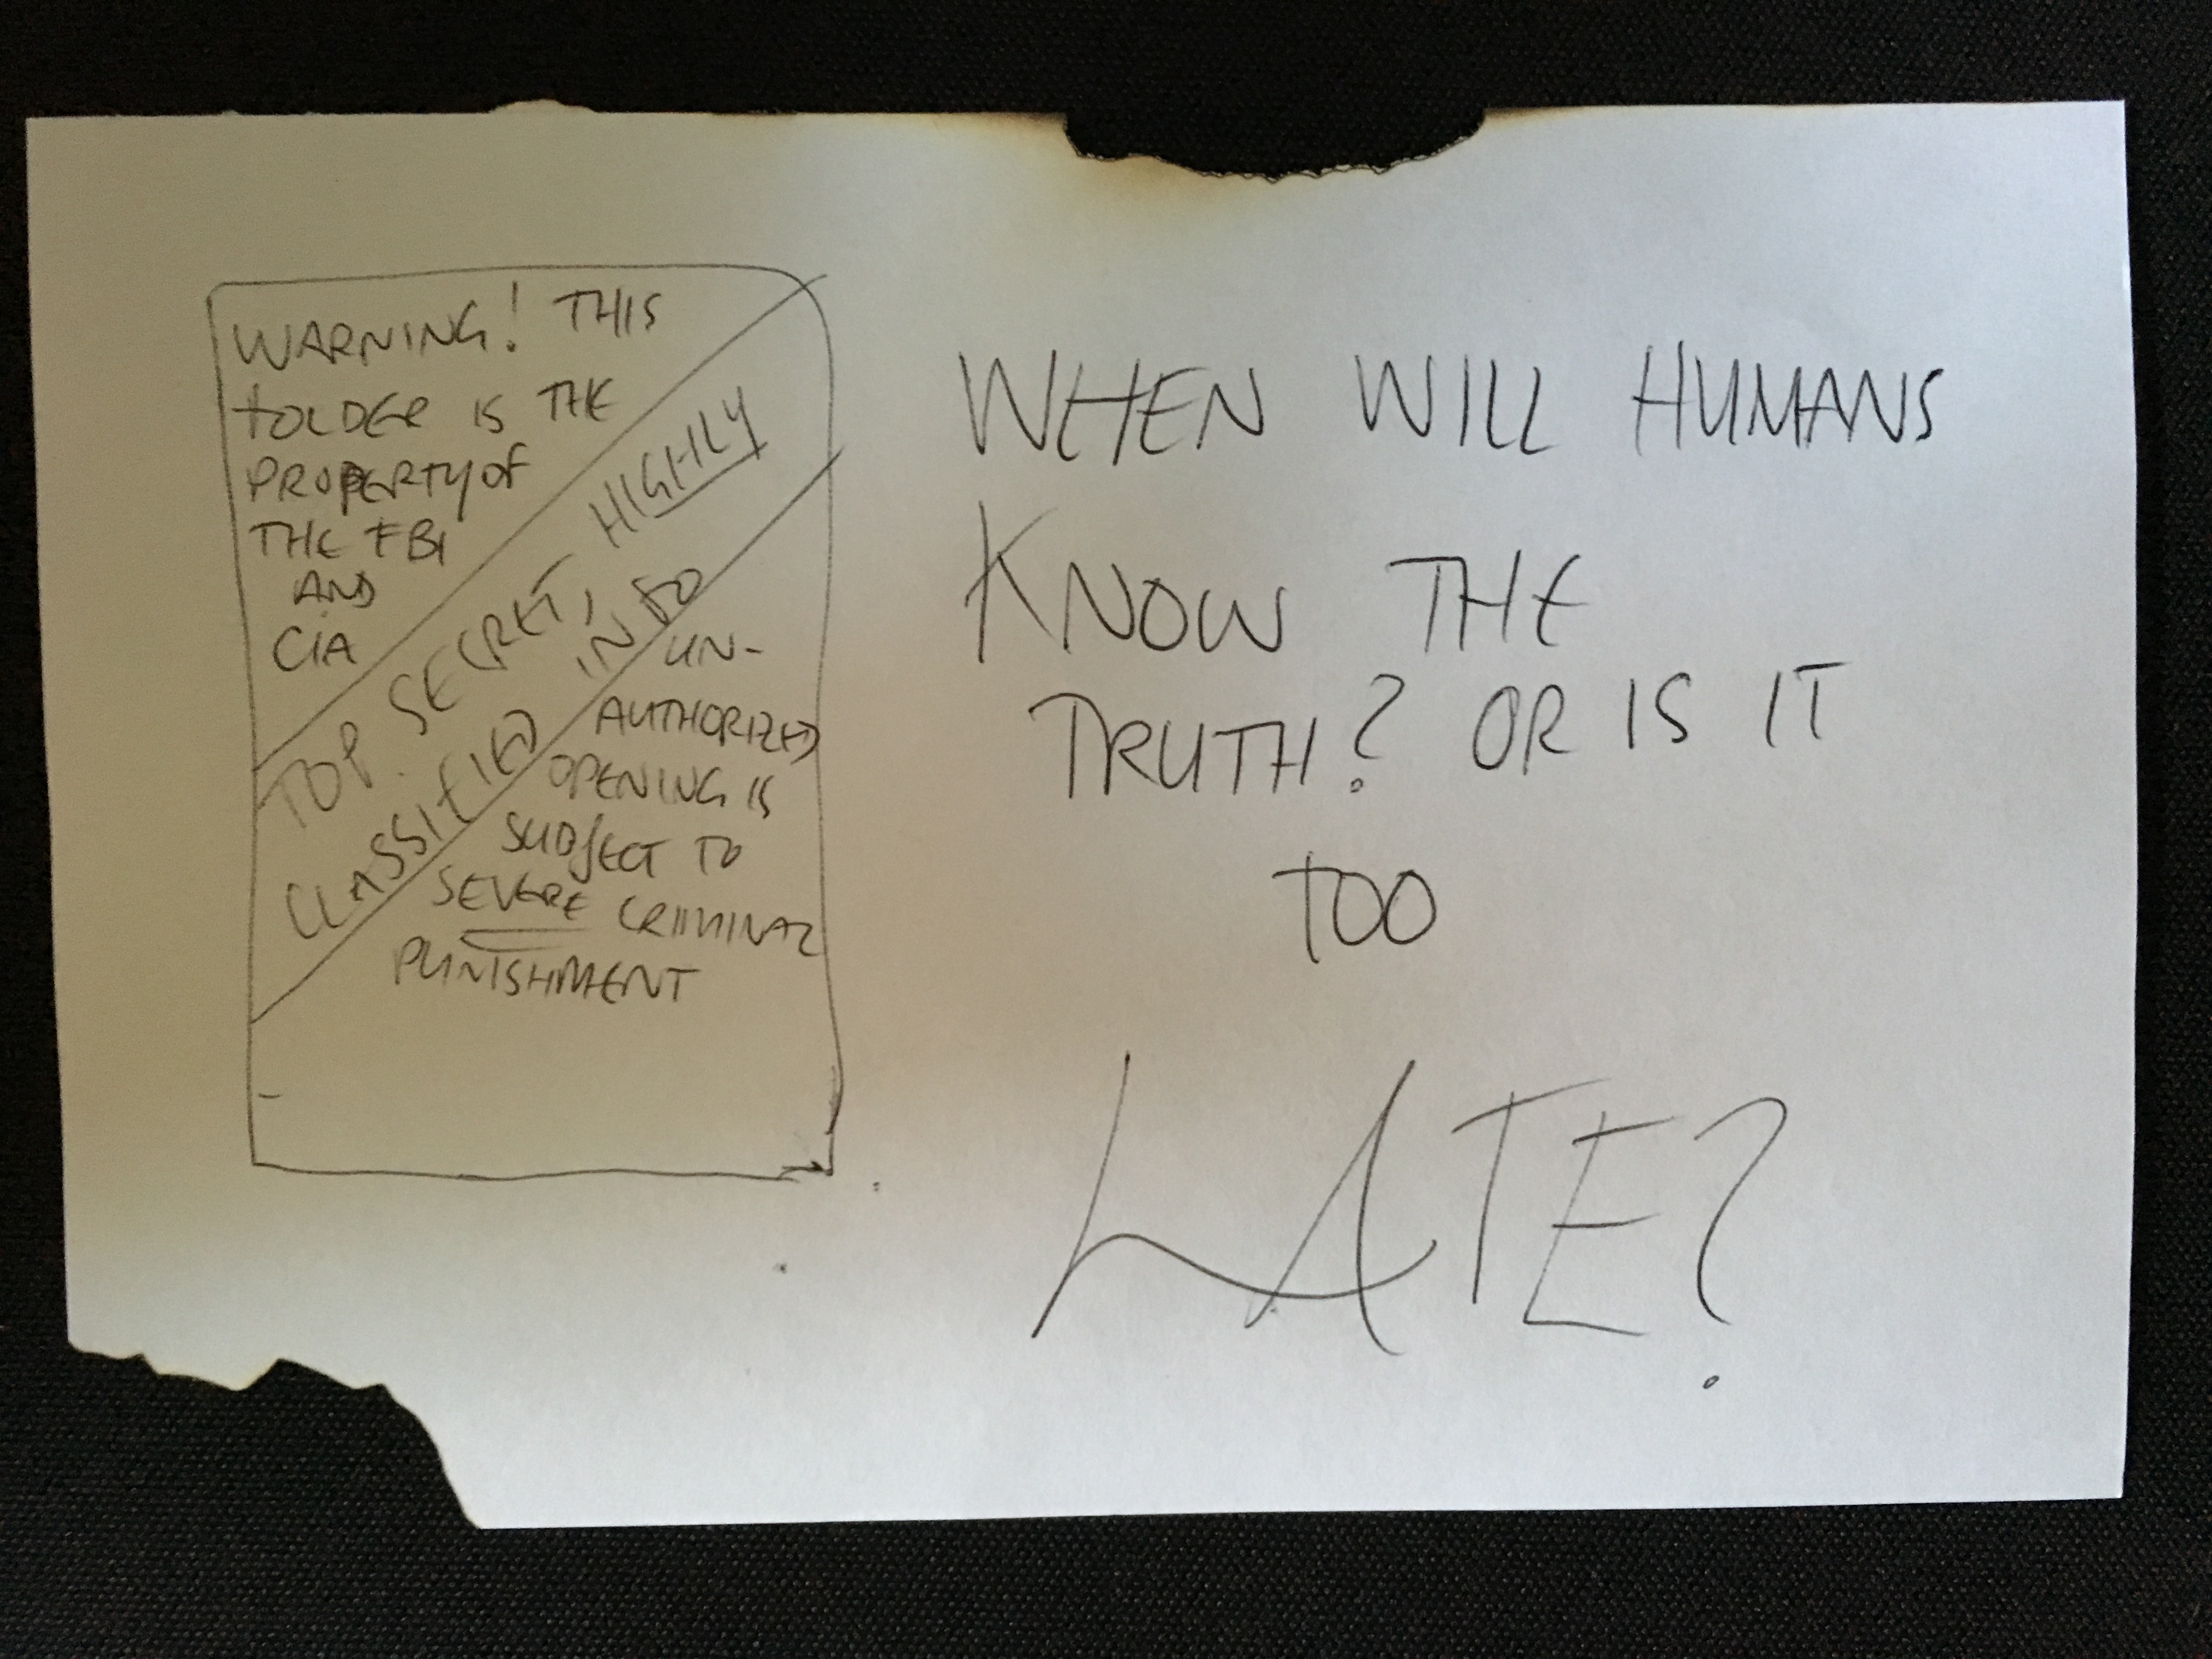 WARNING! THIS
FOLDER IS THE
PROPERTY OF
THE FBI
AND
CIA
HIGHLY
TOP SECRET IN
CLASSIFIED
UN-
AUTHORIZED
OPENING IS
SUBJECT TO
SEVERE CRIMINAL
PUNISHMENT
WHEN WILL HUMANS
KNOW THE
TRUTH? OR IS IT
TOO
LATE?